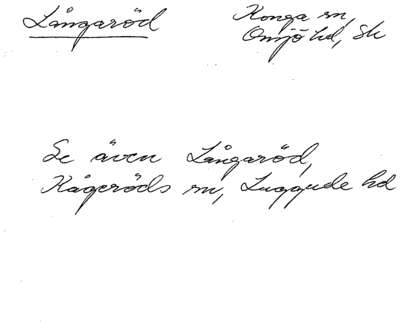 Långaröd
Konga sn,
Onsjö hd, Sk
Se även Långaröd,
Kågeröds sn, Luggude hd